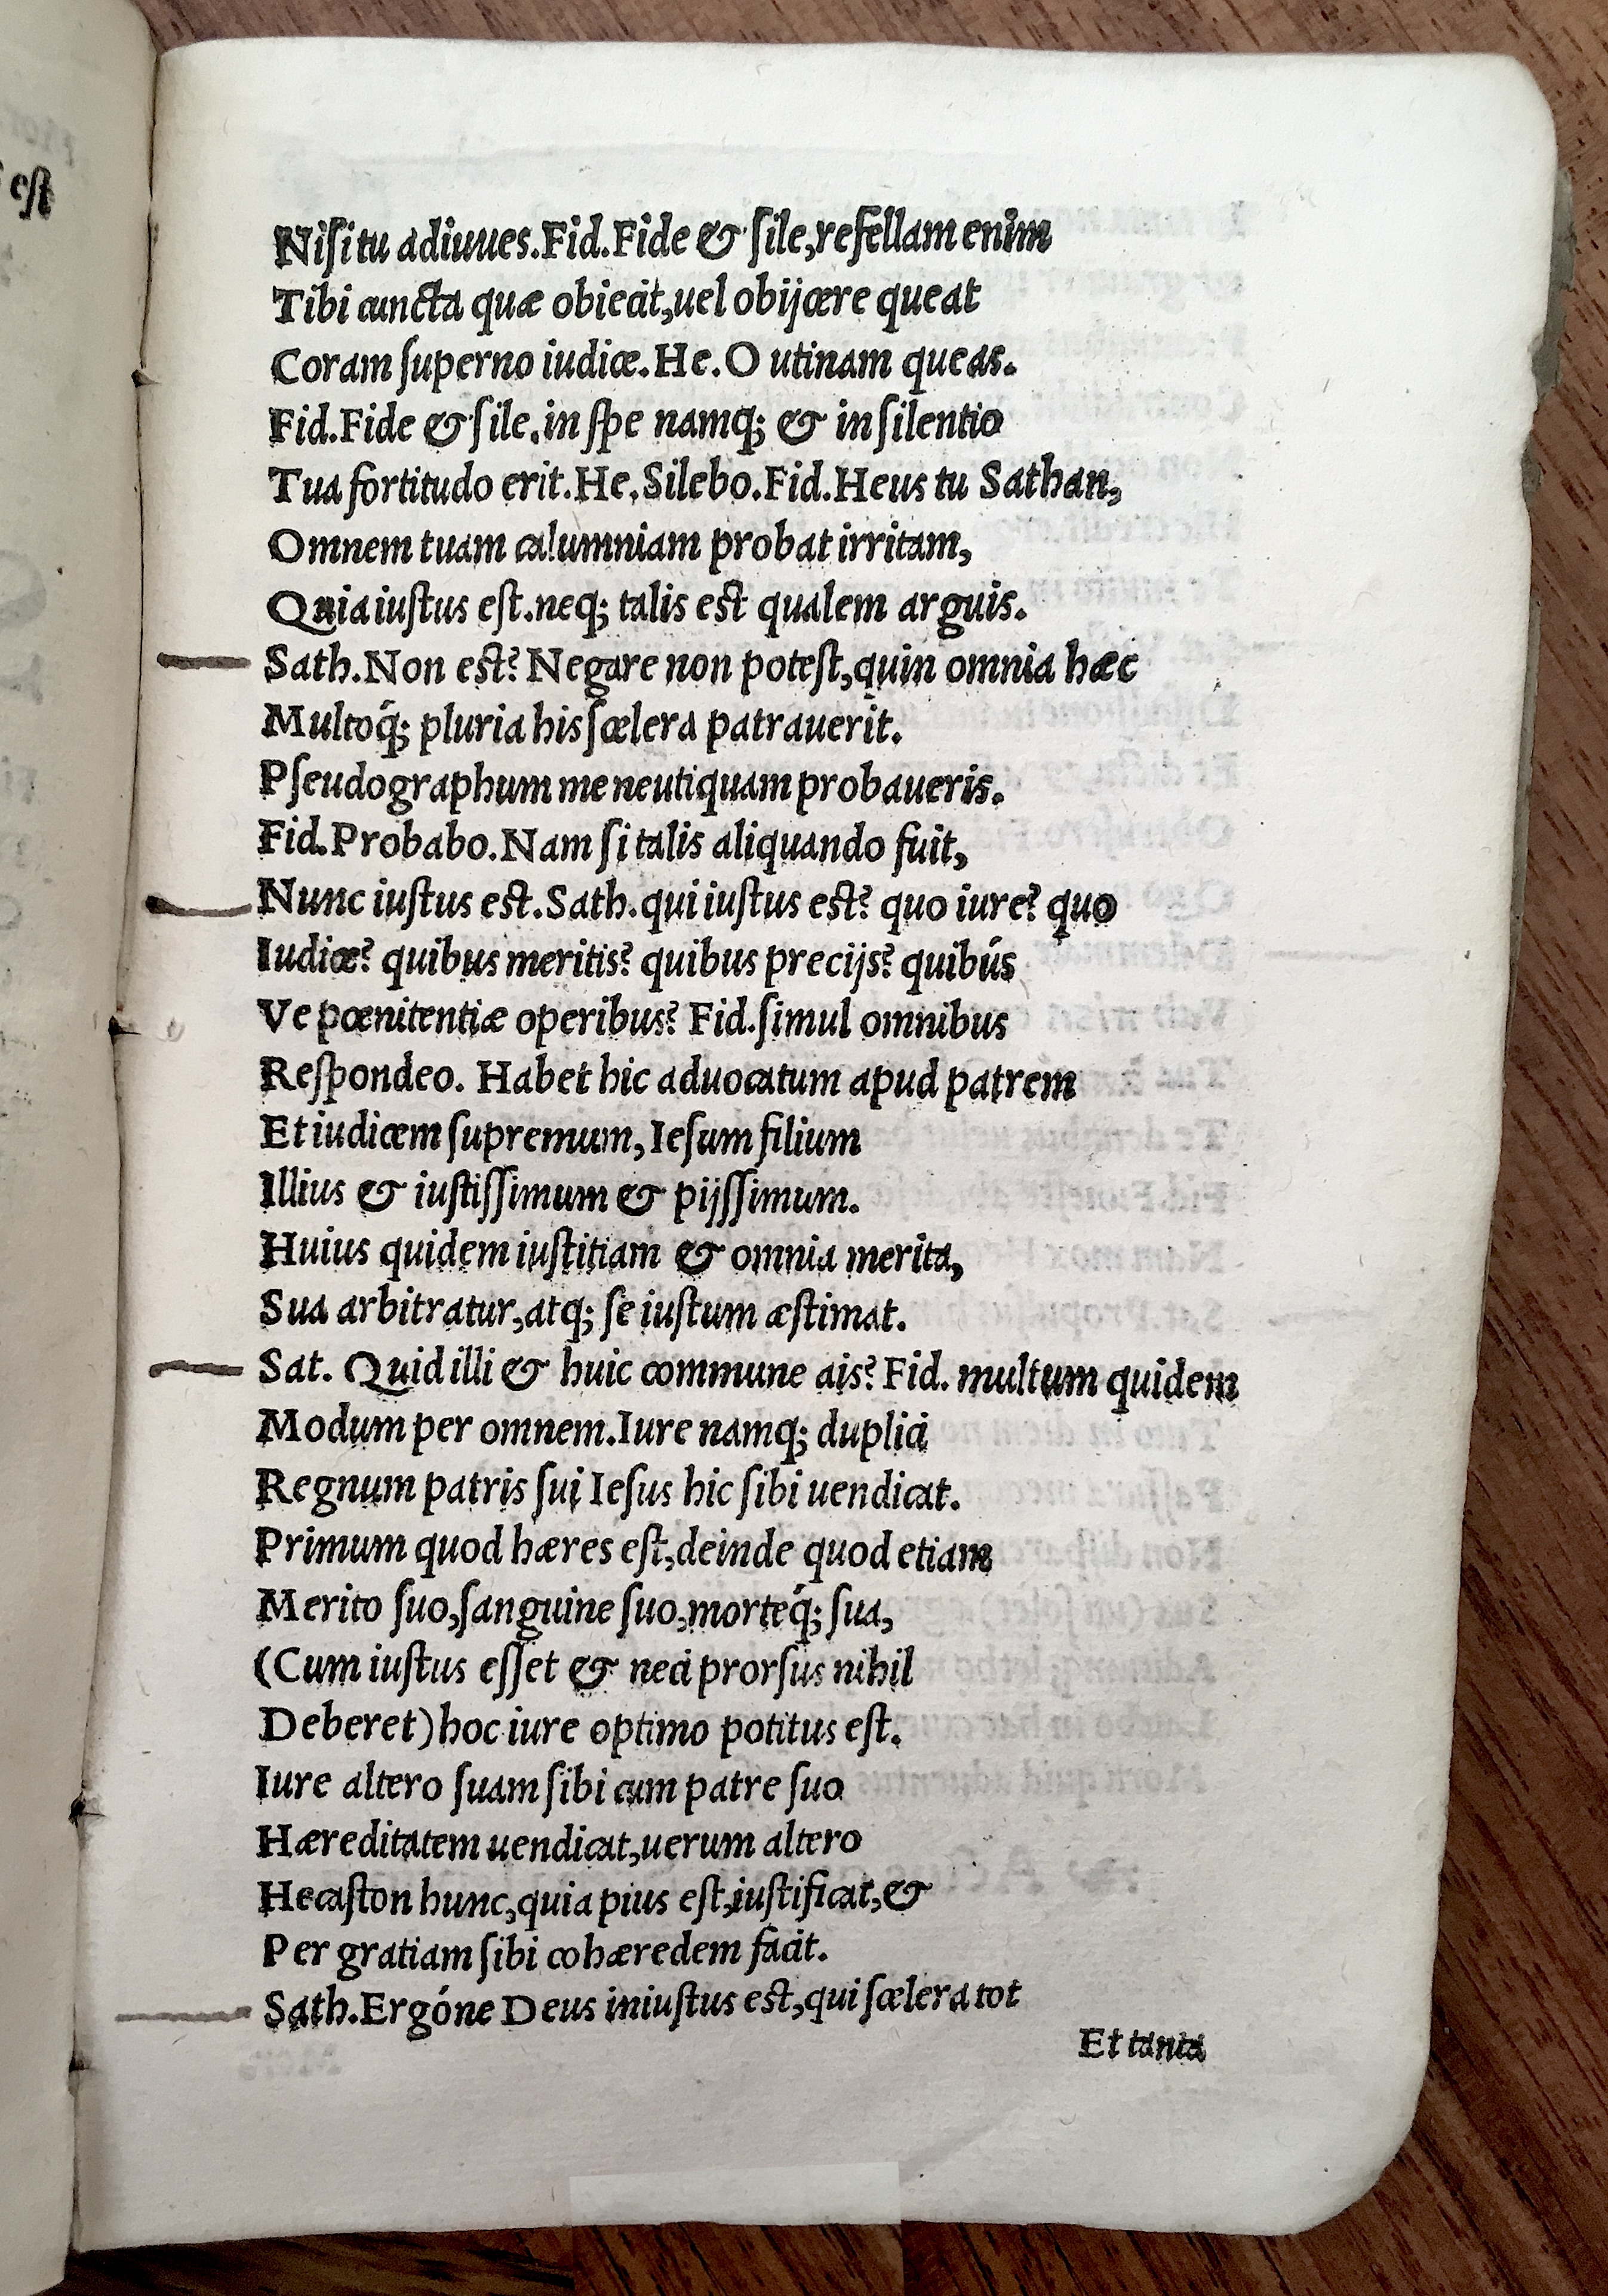 Niſi tu adiuues. Fid. Fide & ſile, refellam enim
Tibi cuncta quæ obiecit, uel obijcere queat
Coram ſuperno iudice. He. O utinam queas.
Fid. Fide & ſile. in ſpe namq; & in ſilentio
Tua fortitudo erit. He. Silebo. Fid. Heus tu Sathan,
Omnem tuam calumniam probat irritam,
Quia iuſtus eſt. neq; talis est qualem arguis.
Sath. Non est? Negare non poteſt, quin omnia hæc
Multoq́; pluria his ſcelera patrauerit.
Pſeudographum me neutiquam probaueris.
Fid. Probabo. Nam ſi talis aliquando fuit,
Nunc iuſtus est. Sath. qui iuſtus est? quo iure? quo
Iudice? quibus meritis? quibus precijs? quibús
Ve pœnitentiæ operibus? Fid. ſimul omnibus
Reſpondeo. Habet hic aduocatum apud patrem
Et iudicem ſupremum, Ieſum filium
Illius & iuſtiſſimum & pijſſimum.
Huius quidem iuſtitiam & omnia merita,
Sua arbitratur, atq; ſe iuſtum æſtimat.
Sat. Quid illi & huic commune ais? Fid. multum quidem
Modum per omnem. Iure namq; duplici
Regnum patris ſui Ieſus hic ſibi uendicat.
Primum quod hæres eſt, deinde quod etiam
Merito ſuo, ſanguine ſuo, morteq́; ſua,
(Cum iuſtus eſſet & neci prorſus nihil
Deberet) hoc iure optimo potitus eſt.
Iure altero ſuam ſibi cum patre ſuo
Hæreditatem uendicat, uerum altero
Hecaſton hunc, quia pius eſt, iuſtificat, &
Per gratiam ſibi cohæredem facit.
Sath. Ergóne Deus iniuſtus est, qui ſcelera tot
Et tanta